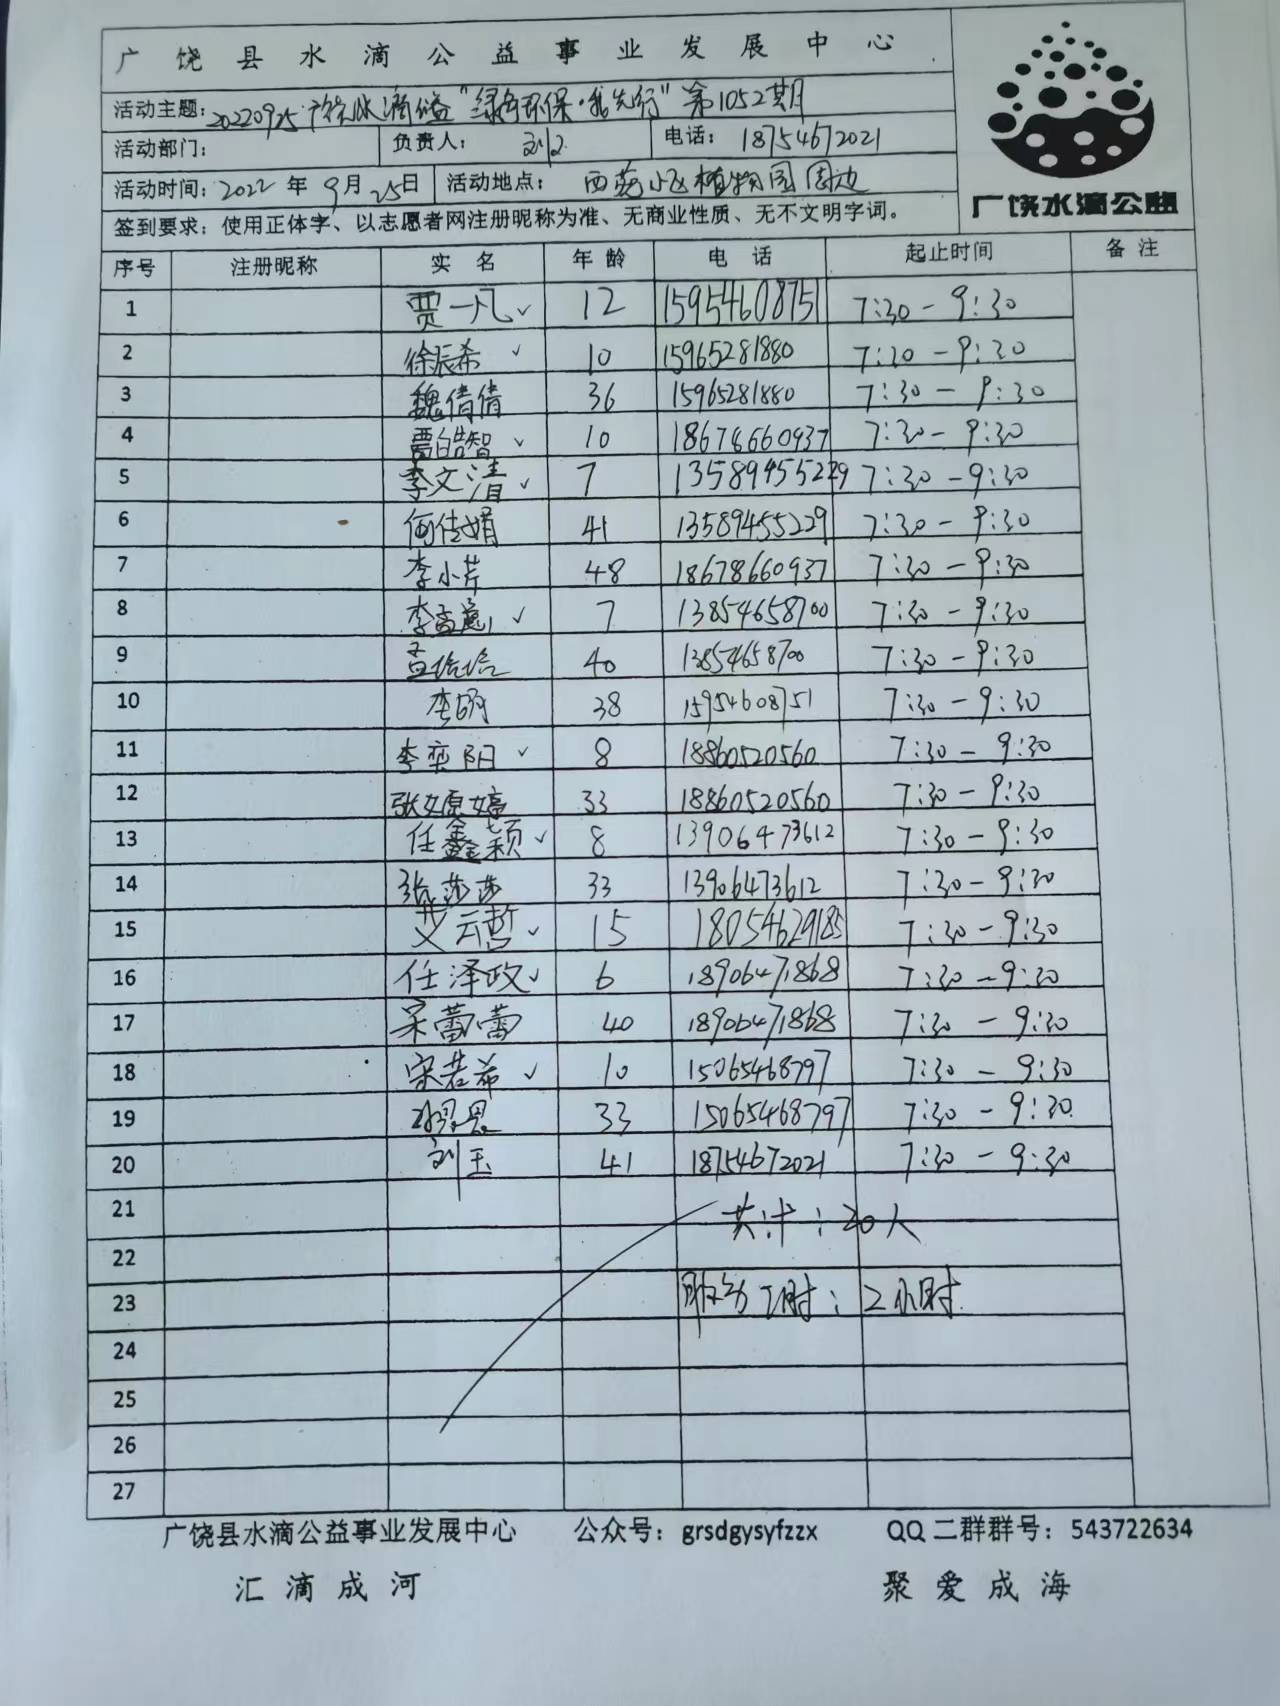 广饶县水滴公益事业发展中心
活动主题：20220925广饶水滴公益"绿色环保·我先行"第1052期
活动部门： 负责人： 刘玉 电话： 18754672021
活动时间：2022年9月25日 活动地点： 西苑小区植物园周边
广饶水滴公益
签到要求：使用正体字、以志愿者网注册昵称为准、无商业性质、无不文明字词。
序号 注册昵称 实名 年龄 电话 起止时间 备注
1 贾一凡✓ 12 15954608751 7:30-9:30
2 徐辰希✓ 10 15965281880 7:30-9:30
3 魏倩倩 36 15965281880 7:30-9:30
4 ✓ 10 18678660937 7:30-9:30
5 李文清✓ 7 13589455229 7:30-9:30
6 何佳娟 41 13589455229 7:30-9:30
7 李小芹 48 18678660937 7:30-9:30
8 ✓ 7 13854658700 7:30-9:30
9 40 13854658700 7:30-9:30
10 38 15954608751 7:30-9:30
11 李奕阳✓ 8 18860520560 7:30-9:30
12 张嫄婷 33 18860520560 7:30-9:30
13 任鑫颖✓ 8 13906473612 7:30-9:30
14 张莎莎 33 13906473612 7:30-9:30
15 艾云哲✓ 15 18054629185 7:30-9:30
16 任泽政✓ 6 18906471868 7:30-9:30
17 宋蕾蕾 40 18906471868 7:30-9:30
18 宋若希✓ 10 15065468797 7:30-9:30
19 33 15065468797 7:30-9:30
20 刘玉 41 18754672021 7:30-9:30
21 共计：20人
22
23 服务工时：2小时
24
25
26
27
广饶县水滴公益事业发展中心 公众号：grsdgysyfzzx QQ二群群号：543722634
汇滴成河 聚爱成海